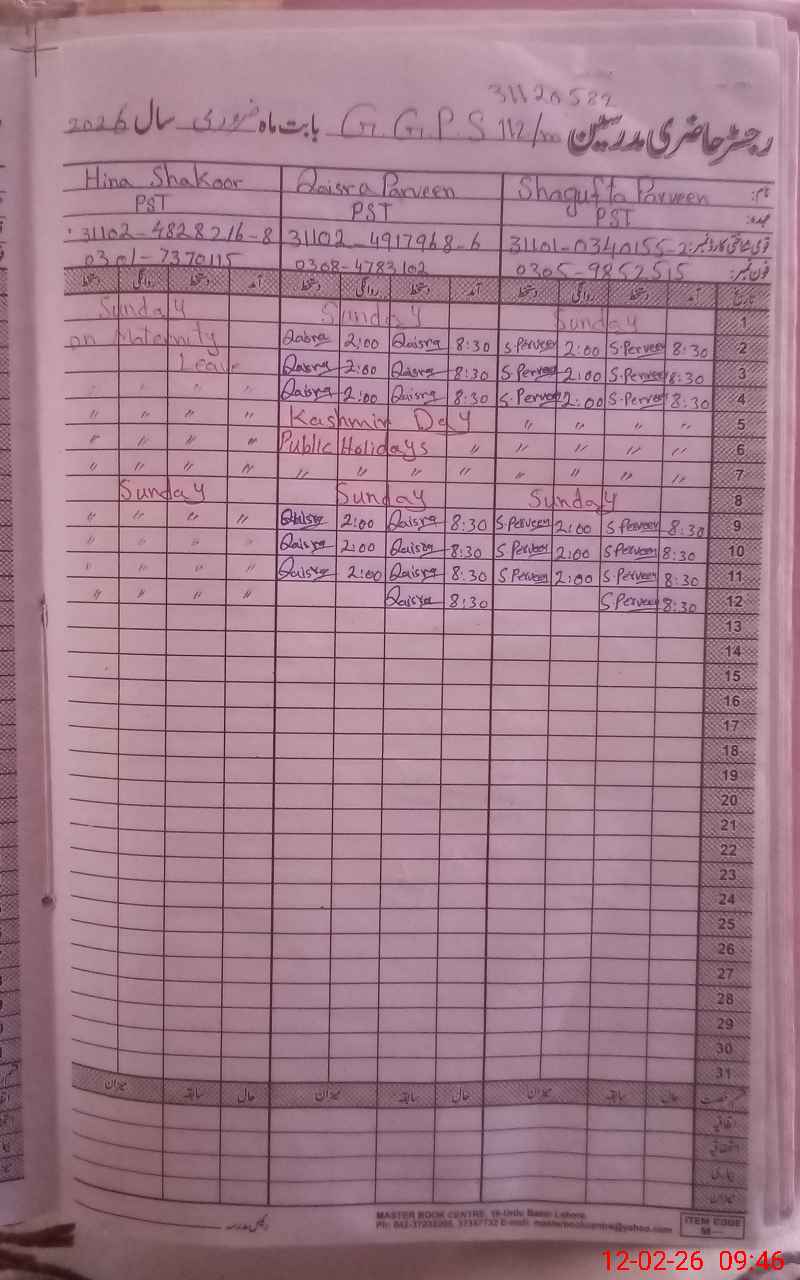 31120589
رجسٹر حاضری مدرسین G.G.P.S 112/m بابت ماہ فروری سال 2026
نام: Shagufta Parveen Qaisra Parveen Hina Shakoor
عہدہ: PST PST PST
قومی شناختی کارڈ نمبر: 31101-0340155-2 31102-4917968-6 31102-4828216-8
فون نمبر: 0305-9852515 0308-4783102 0301-7370115
تاریخ آمد دستخط روانگی دستخط آمد دستخط روانگی دستخط آمد دستخط روانگی دستخط
1 Sunday Sunday Sunday
2 8:30 S.Perveen 2:00 S.Perveen 8:30 Qaisra 2:00 Qaisra on Maternity
3 8:30 S.Perveen 2:00 S.Perveen 8:30 Qaisra 2:00 Qaisra Leave
4 8:30 S.Perveen 2:00 S.Perveen 8:30 Qaisra 2:00 Qaisra " " " "
5 " " " " Kashmir Day " " " "
6 " " " " " Public Holidays " " " "
7 " " " " " " " " " " " "
8 Sunday Sunday Sunday
9 8:30 S.Perveen 2:00 S.Perveen 8:30 Qaisra 2:00 Qaisra " " " "
10 8:30 S.Perveen 2:00 S.Perveen 8:30 Qaisra 2:00 Qaisra " " " "
11 8:30 S.Perveen 2:00 S.Perveen 8:30 Qaisra 2:00 Qaisra " " " "
12 8:30 S.Perveen 8:30 Qaisra " " " "
13
14
15
16
17
18
19
20
21
22
23
24
25
26
27
28
29
30
31
رخصت حال سابقہ میزان حال سابقہ میزان حال سابقہ میزان
اتفاقیہ
استحقاقیہ
بیماری
میزان
رئیس مدرسہ
MASTER BOOK CENTRE, 16-Urdu Bazar Lahore.
Ph: 042-37232205, 37357732 E-mail: masterbookcentre@yahoo.com
ITEM CODE
M—
12-02-26 09:46